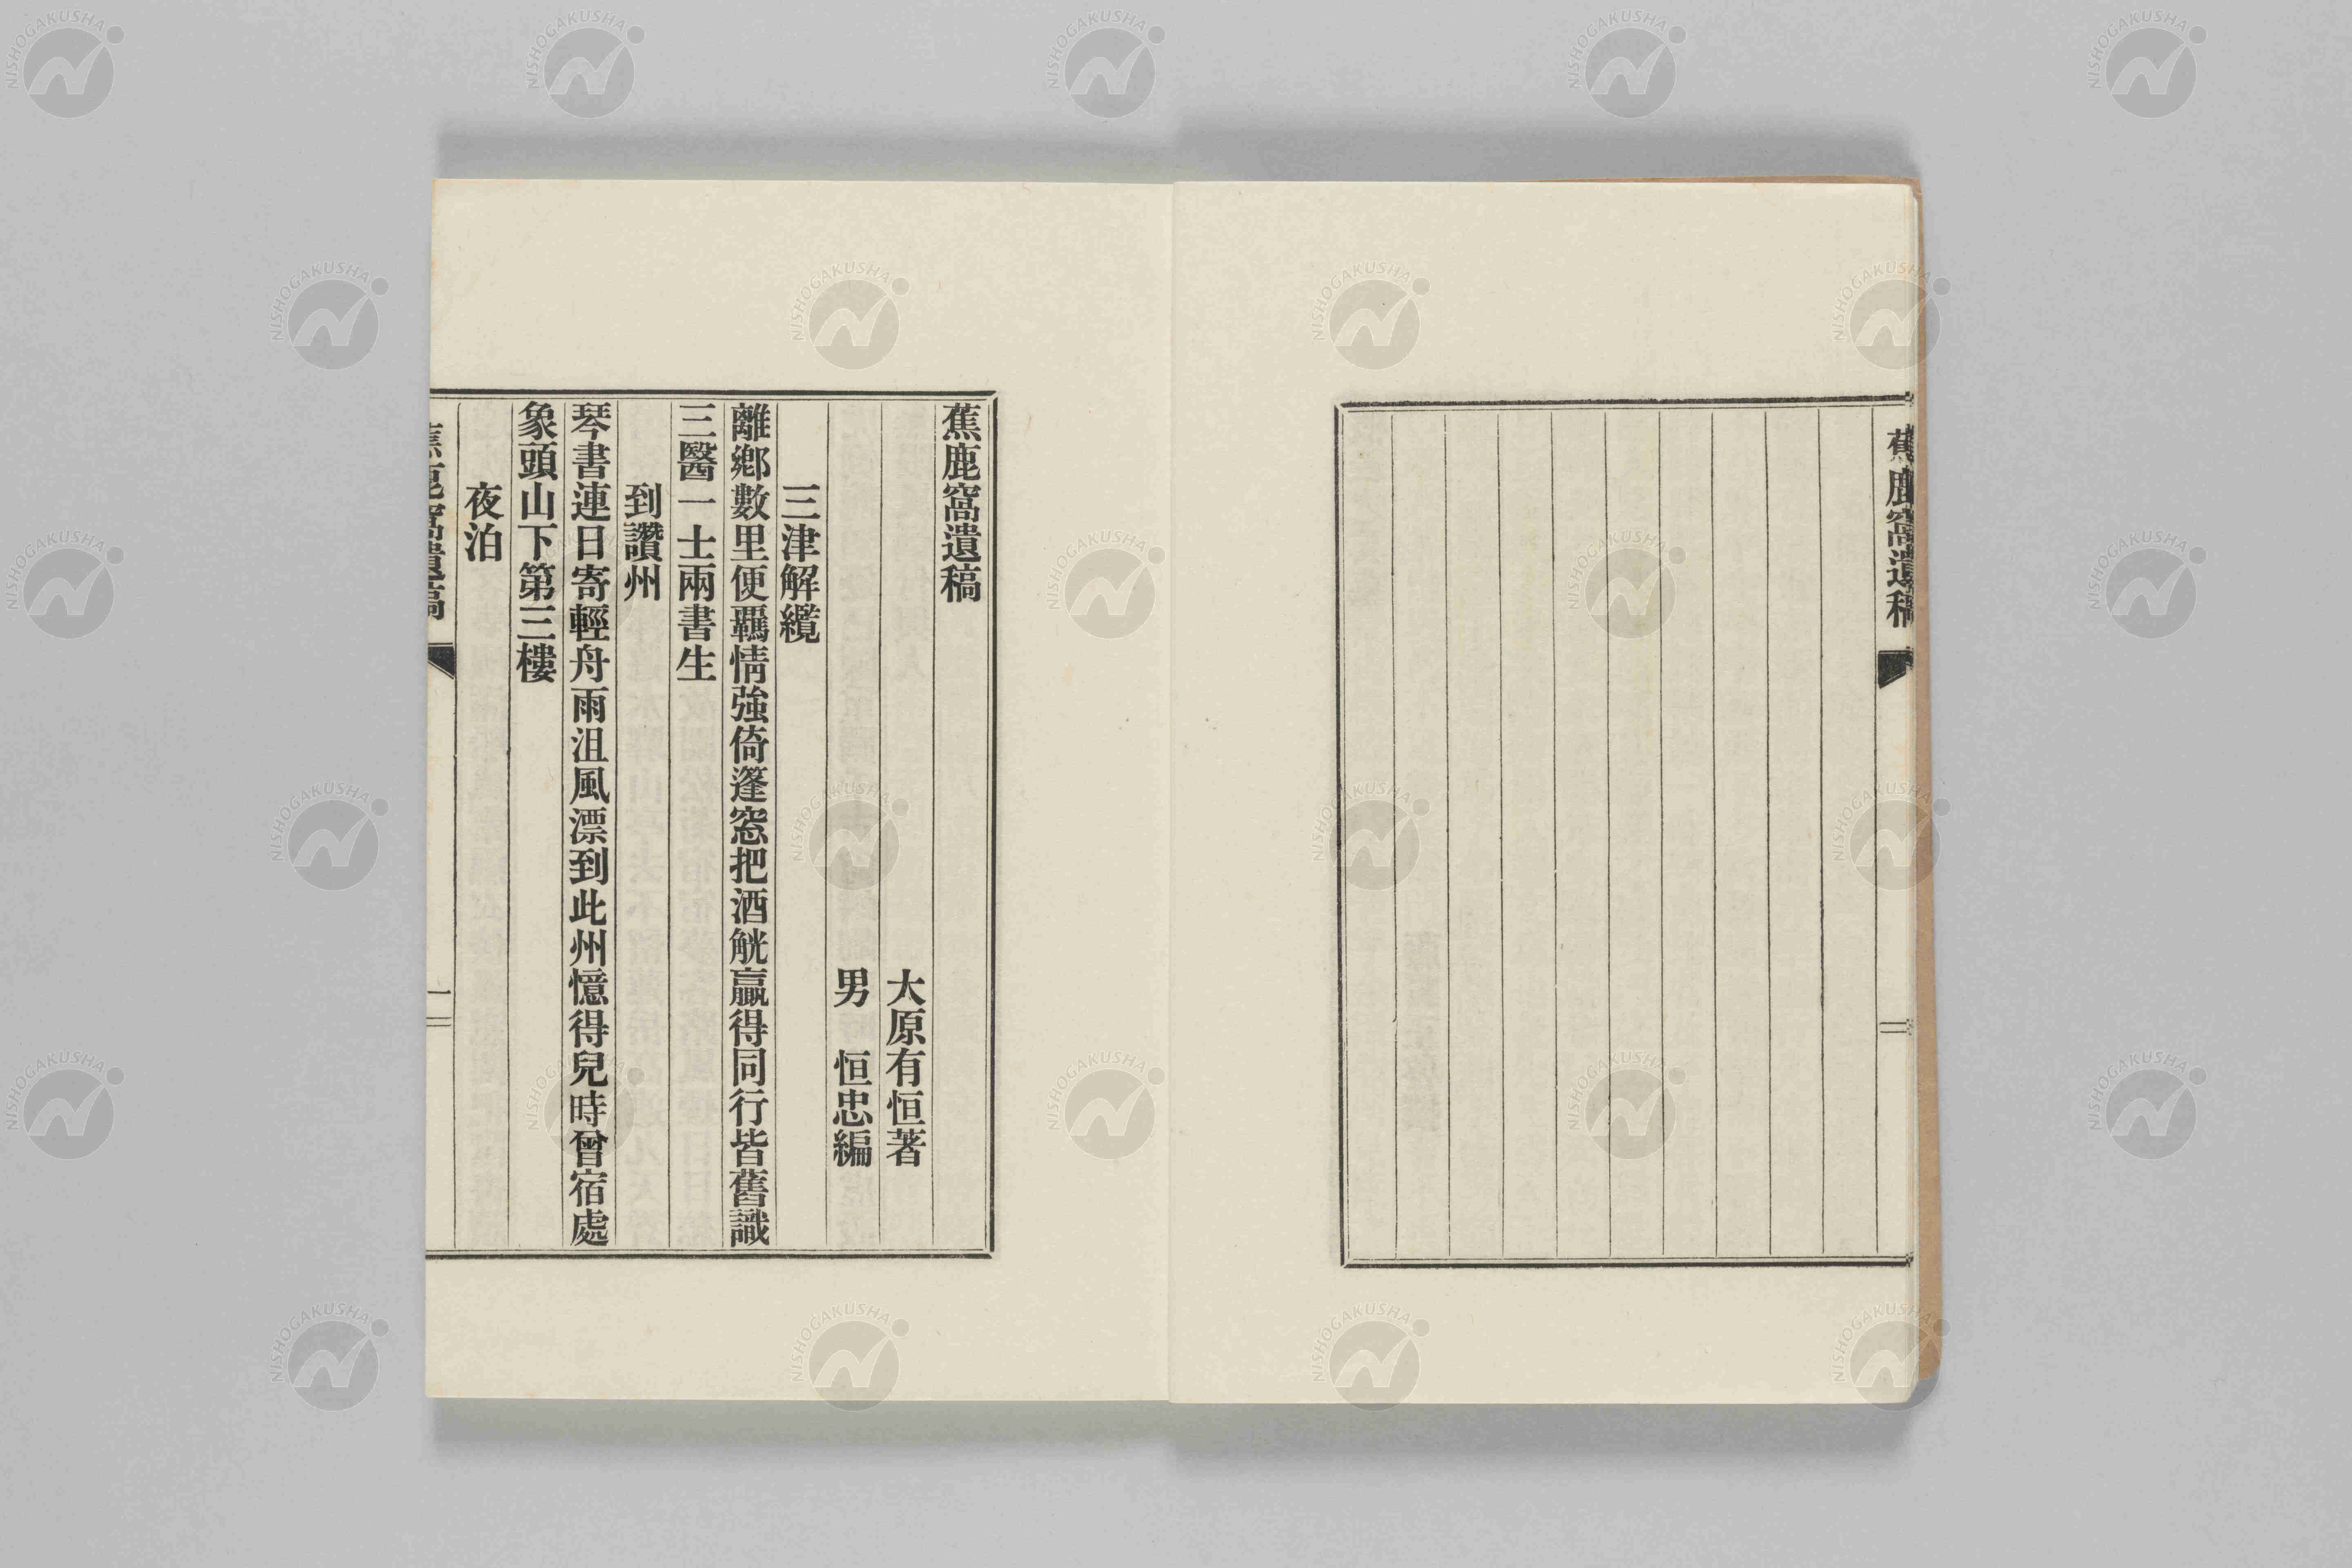 蕉鹿窩遺稿
蕉鹿窩遺稿
大原有恒著
男 恒忠編
三津解纜
離鄉數里便羈情強倚篷窓把酒觥贏得同行皆舊識
三醫一士兩書生
到讚州
琴書連日寄輕舟雨沮風漂到此州憶得兒時曾宿處
象頭山下第三樓
夜泊
蕉鹿窩遺稿
一
NISHOGAKUSHA